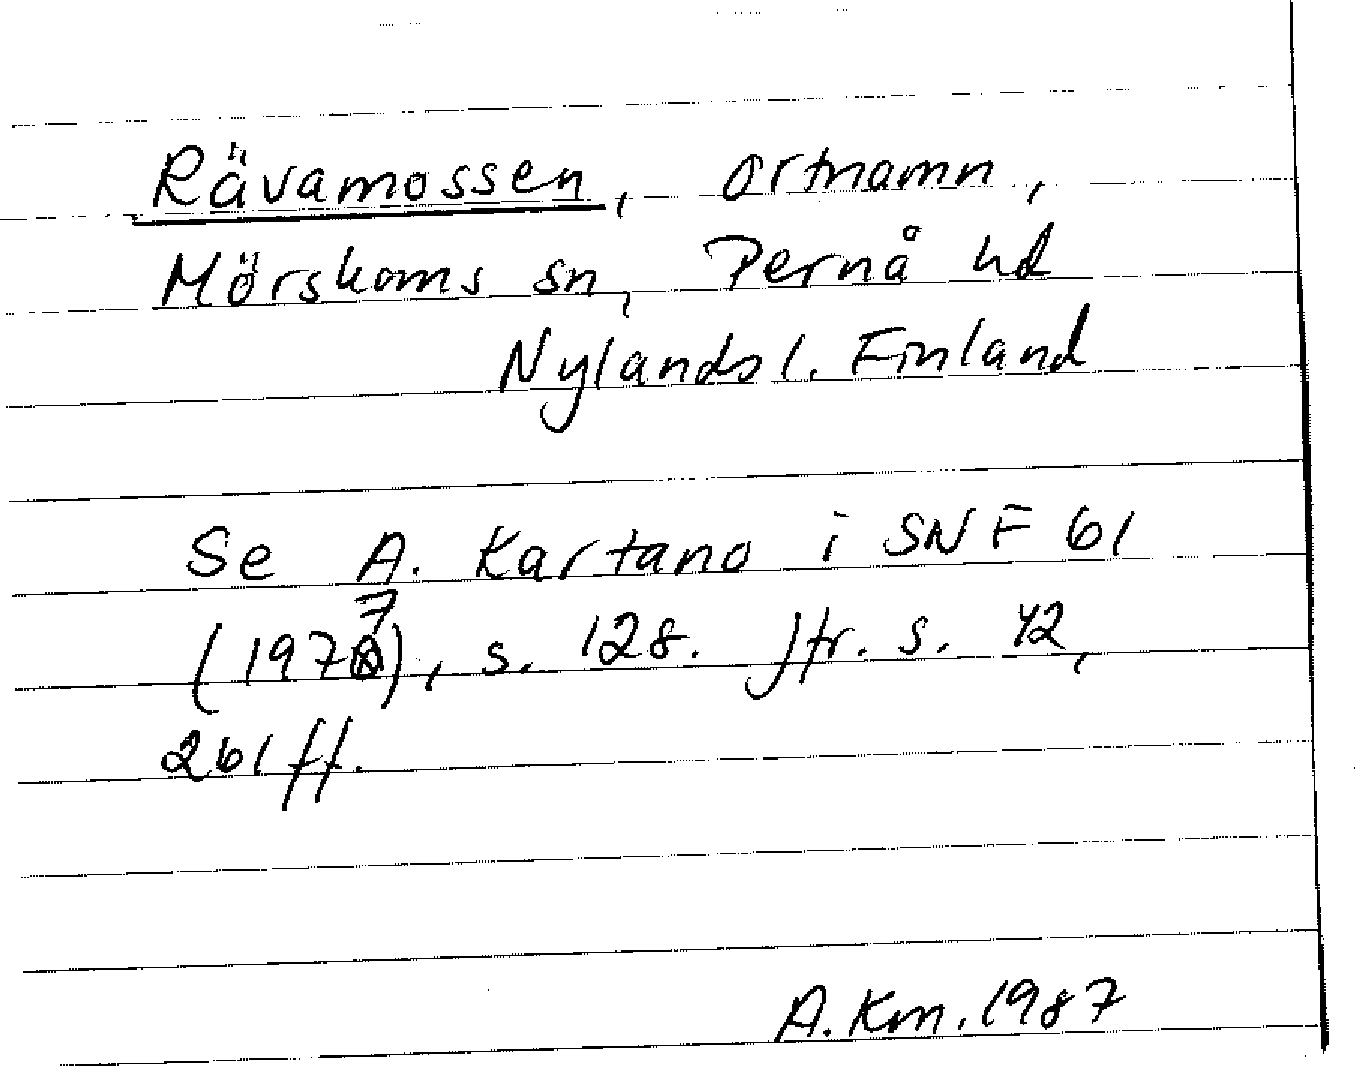 Rävamossen, ortnamn,
Mörskoms sn, Pernå hd
Nylands l. Finland
Se A. Kartano i SNF 61
(1977), s. 128. Jfr. s. 42,
261 ff.
A. Km. 1987